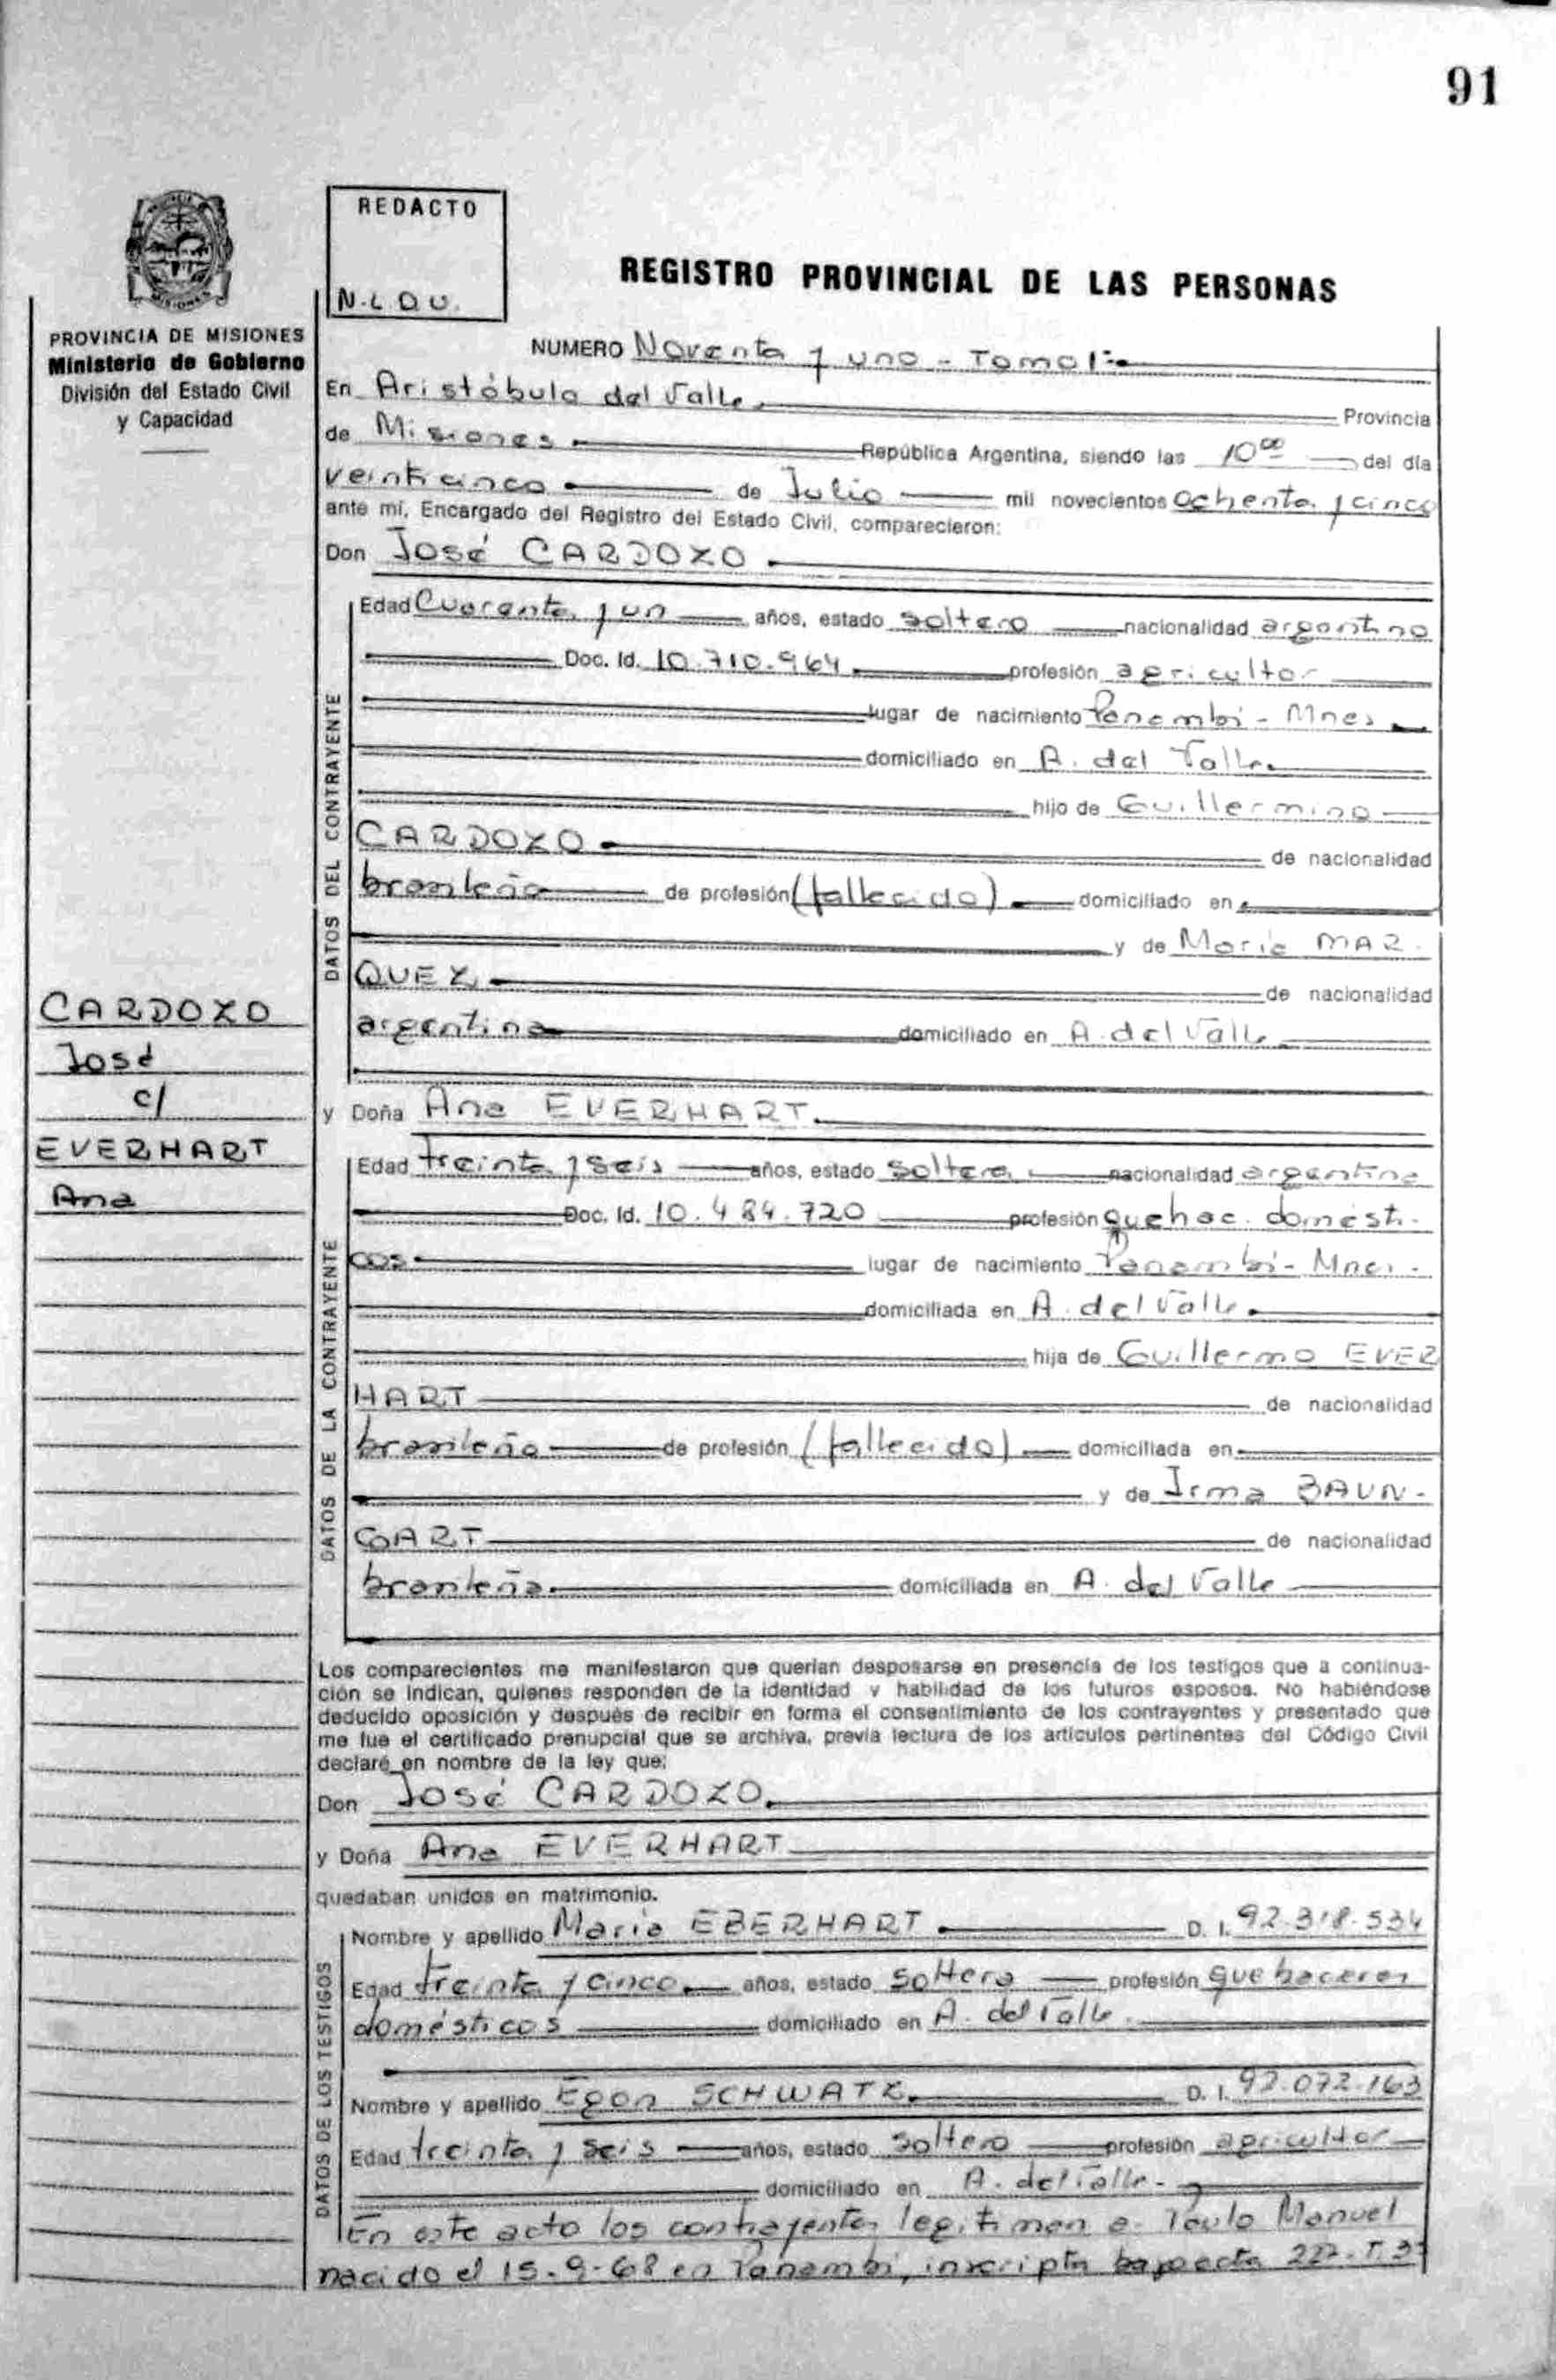 91
REDACTO
N.L.D.U.
REGISTRO PROVINCIAL DE LAS PERSONAS
PROVINCIA DE MISIONES
Ministerio de Gobierno
División del Estado Civil
y Capacidad
NUMERO Noventa y uno - Tomo 1º-
En Aristóbulo del Valle Provincia
de Misiones República Argentina, siendo las 10ºº del día
veinticinco de Julio mil novecientos ochenta y cinco
ante mí, Encargado del Registro del Estado Civil, comparecieron:
Don José CARDOZO
DATOS DEL CONTRAYENTE
Edad Cuarenta y un años, estado soltero nacionalidad argentino
Doc. Id. 10.710.964 profesión agricultor
lugar de nacimiento Panambí - Mnes
domiciliado en A. del Valle
hijo de Guillermino
CARDOZO de nacionalidad
brasileña de profesión (fallecido) domiciliado en
y de María MAR-
QUEZ de nacionalidad
argentina domiciliado en A. del Valle
CARDOZO
José
c/
EVERHART
Ana
y Doña Ana EVERHART
DATOS DE LA CONTRAYENTE
Edad treinta y seis años, estado soltera nacionalidad argentina
Doc. Id. 10.484.720 profesión quehac. domésti-
cos lugar de nacimiento Panambí - Mnes.
domiciliada en A. del Valle
hija de Guillermo EVER
HART de nacionalidad
brasileña de profesión (fallecido) domiciliada en
y de Irma BAUN-
GART de nacionalidad
brasileña domiciliada en A. del Valle
Los comparecientes me manifestaron que querían desposarse en presencia de los testigos que a continua-
ción se indican, quienes responden de la identidad y habilidad de los futuros esposos. No habiéndose
deducido oposición y después de recibir en forma el consentimiento de los contrayentes y presentado que
me fue el certificado prenupcial que se archiva, previa lectura de los artículos pertinentes del Código Civil
declaré en nombre de la ley que:
Don José CARDOZO
y Doña Ana EVERHART
quedaban unidos en matrimonio.
DATOS DE LOS TESTIGOS
Nombre y apellido María EBERHART D. I. 92.318.534
Edad treinta y cinco años, estado soltera profesión quehaceres
domésticos domiciliado en A. del Valle
Nombre y apellido Egon SCHWATZ D. I. 92.072.163
Edad treinta y seis años, estado soltero profesión agricultor
domiciliado en A. del Valle -
En este acto los contrayentes legitiman a Paulo Manuel
nacido el 15-9-68 en Panambí, inscripta bajo acta